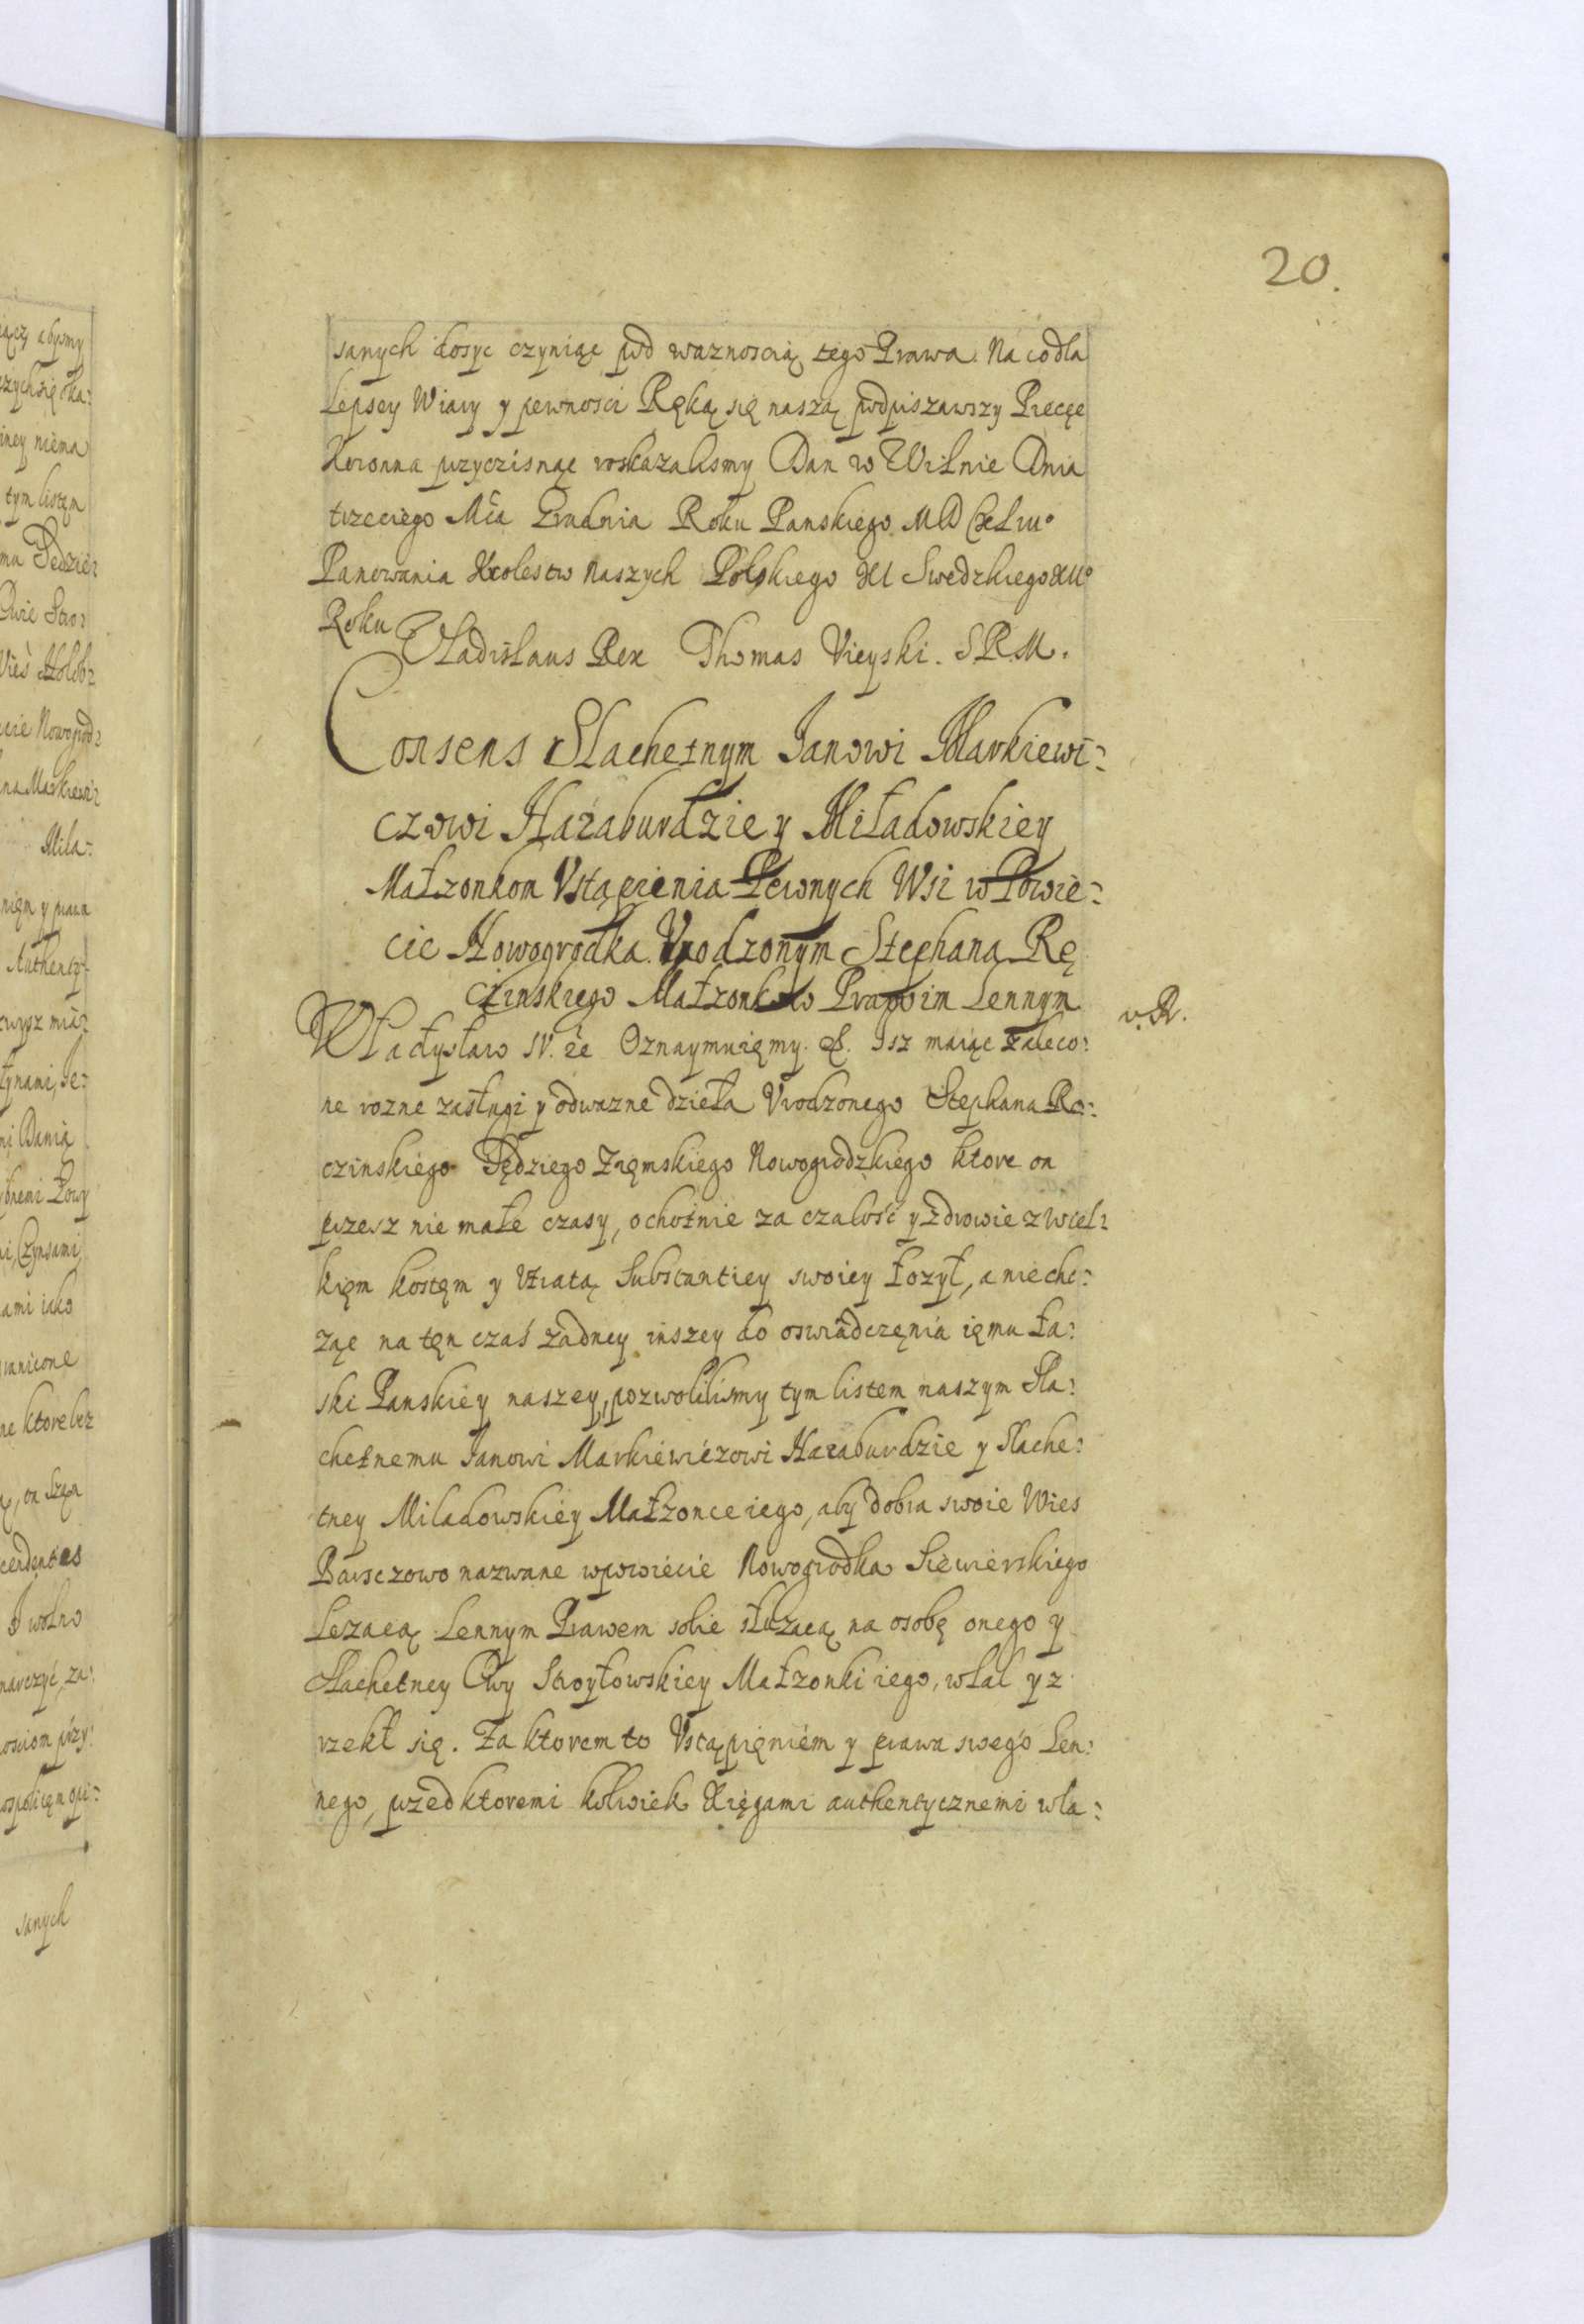 20.
sanych dosyc czyniąc pod waznoscią tego Prawa. Na co dla
Lepsey Wiary y pewnosci Ręką się naszą podpiszawszy Piecęc
Koronna przyczisnąc roskazalismy Dan w Wilnie Dnia
trzeciego Mca Grudnia Roku Panskiego
Panowania Krolestw Naszych Polskiego XI Swedzkiego XII°
Roku
Vladislaus Rex Thomas Vieyski. S.R.M.
Consens Slachetnym Janowi Markiewi:
czowi Haraburdzie y Miładowskiey
Małzonkom Vstąpienia Pewnych Wsi w Powie:
cie Nowogrodka. Vrodzonym Stephana Rę
czinskiego Małzonkow Prawim Lennym
v. R.
Władysław IV. etc Oznaymuięmy. &. Isz maiąc zaleco:
ne rozne zasługi y odwazne dzieła Vrodzonego Stephana Ro:
czinskiego Sędziego Zięmskiego Nowogrodzkiego ktore on
przesz nie małe czasy, ochotnie za czalość y zdrowie z wiel:
kięm kostęm y Vtratą Substantiey swoiey łozył, a niechc:
ząc na tęn czaś zadney inszey do oswiadczęnia ięmu ła:
ski Panskiey naszey, pozwolilismy tym listem naszym Sla:
chetnemu Janowi Markiewiczowi Haraburdzie y Slache:
tney Miladowskiey Małzonce iego, aby dobra swoie Wies
Barsczowo nazwane w powiecie Nowogrodka Siewierskiego
Lezącą Lennym Prawem sobie słuzącą na osobę onego y
Slachetney Ewy Stroyłowskiey Małzonki iego, wlał y z
rzekł się. Za ktorem to Vstąpięniem y prawa swego Len:
nego, przed ktoremi kolwiek Xięgami authentycznemi wla: